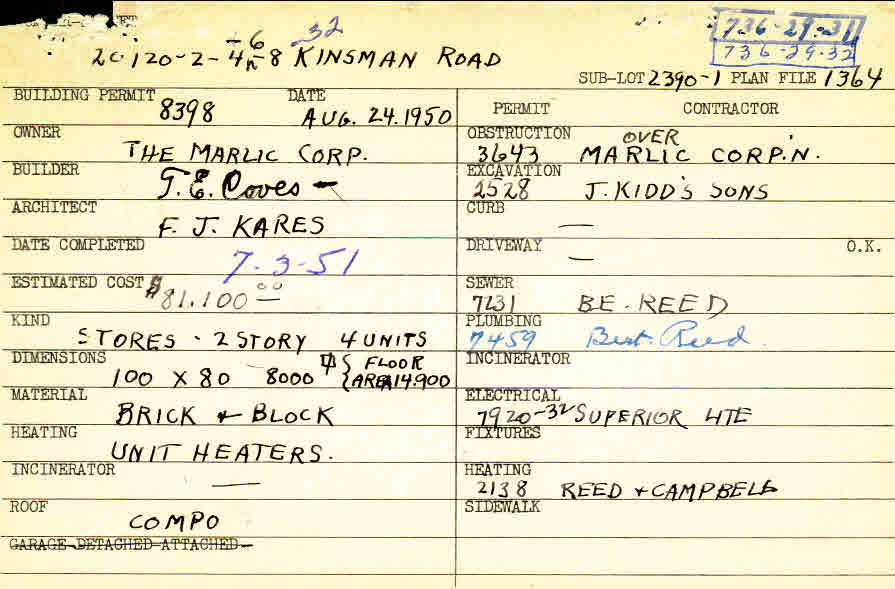 32
736-29-31
736-29-32
20120-2-4-6-8 KINSMAN ROAD
SUB-LOT 2390-1 PLAN FILE 1364
BUILDING PERMIT 8398 DATE AUG. 24.1950
PERMIT CONTRACTOR
OWNER THE MARLIC CORP.
OBSTRUCTION 3643 OVER MARLIC CORP'N.
BUILDER T. E.
EXCAVATION 2528 J. KIDD'S SONS
ARCHITECT F. J. KARES
CURB —
DATE COMPLETED 7-3-51
DRIVEWAY — O.K.
ESTIMATED COST $81,100 00
SEWER 7231 B.E. REED
KIND STORES - 2 STORY 4 UNITS
PLUMBING 7459 Bert. Reed
DIMENSIONS 100 X 80 8000 FLOOR AREA 14.900
INCINERATOR
MATERIAL BRICK + BLOCK
ELECTRICAL 7920-32 SUPERIOR LITE
HEATING UNIT HEATERS.
FIXTURES
INCINERATOR —
HEATING 2138 REED + CAMPBELL
ROOF COMPO
SIDEWALK
GARAGE-DETACHED-ATTACHED-